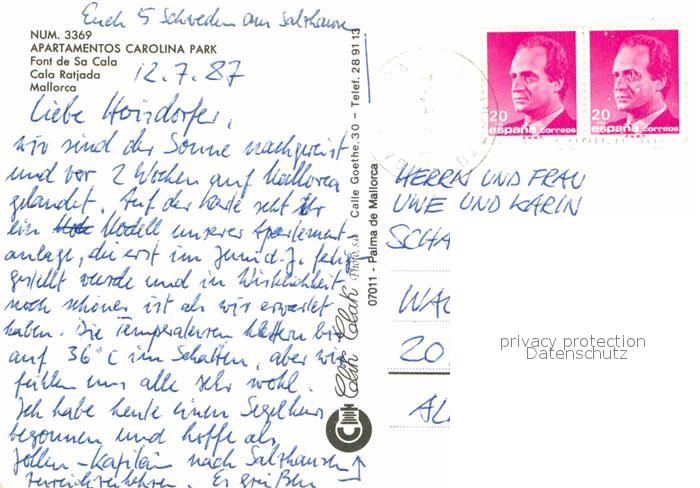 Euch 5 Schweden am Salzhausen
NUM. 3369
APARTAMENTOS CAROLINA PARK
Font de Sa Cala
Cala Ratjada
Mallorca
12.7.87
Liebe Hoisdorfer,
wir sind der Sonne nachgereist
und vor 2 Wochen auf Mallorca
gelandet. Auf der Karte seht Ihr
ein Modell unserer Apartment-
anlage, die erst im Juni d. J. fertig-
gestellt wurde und in Wirklichkeit
noch schöner ist als wir erwartet
haben. Die Temperaturen klettern bis
auf 36°C im Schatten, aber wir
fühlen uns alle sehr wohl.
Ich habe heute einen Segelkurs
begonnen und hoffe als
Jollen-Kapitän nach Salzhausen
zurückzukehren. Es grüßen
Click Clak Photo, s.a. Calle Goethe, 30 - Telef. 28 91 13
07011 - Palma de Mallorca
20
españa correos
F.N.M.T.
20
españa correos
F.N.M.T.
HERRN UND FRAU
UWE UND KARIN
SCHA
WAC
20
AL
privacy protection
Datenschutz